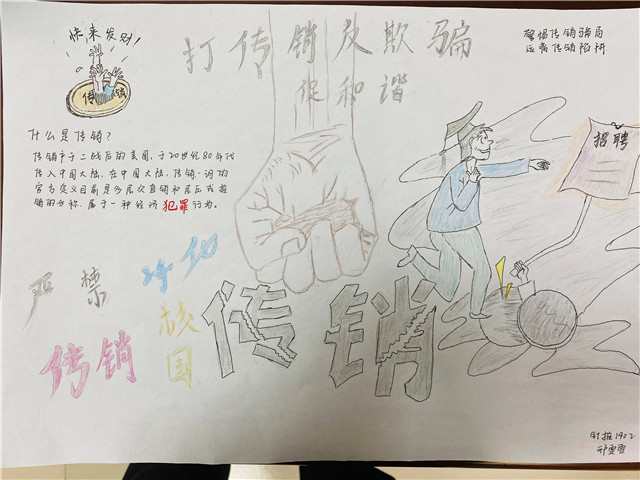 快来发财!
传销
打传销反欺骗
促和谐
警惕传销骗局
远离传销陷阱
招聘
什么是传销?
传销产于二战后的美国,于20世纪80年代
传入中国大陆,在中国大陆,传销一词的
官方定义目前是多层次直销和层压式推
销的合称,属于一种经济犯罪行为。
严禁
传销
净化
校园
传销
1902